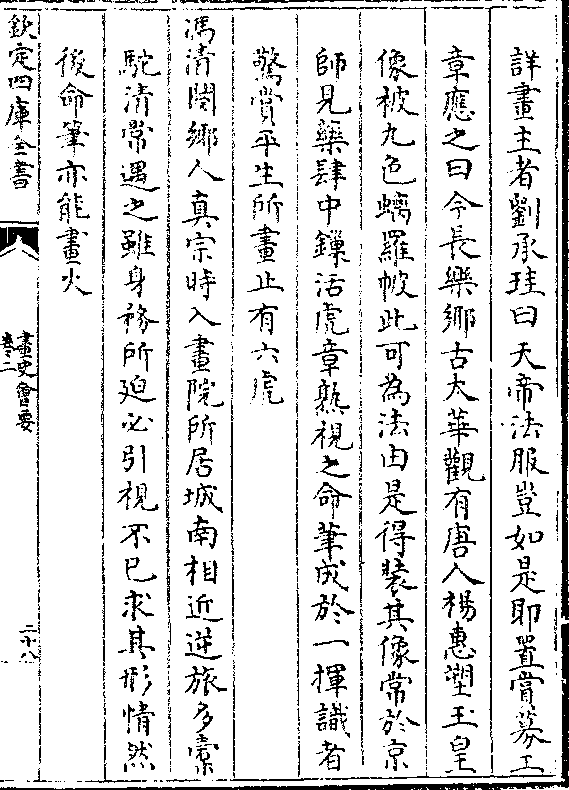 詳畫主者劉承珪曰天帝法服豈如是耶置賞募工
章應之曰今長樂鄉古太華觀有唐人楊惠塑玉皇
像被九色螭羅帔此可為法由是得裝其像常於京
師見藥肆中鏁活虎章熟視之命筆成於一揮識者
驚賞平生所畫止有六虎
馮清閿鄉人真宗時入畫院所居城南相近逆旅多橐
駝清常遇之雖身務所廹必引視不已求其形情然
後命筆亦能畫火
欽定四庫全書
畫史會要
卷二
二十八